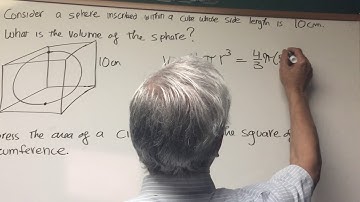 Consider a sphere inscribed within a cube whose side length is 10cm.
What is the volume of the sphere?
10cm
π r³ = 4/3 π(
the area of a
the square of